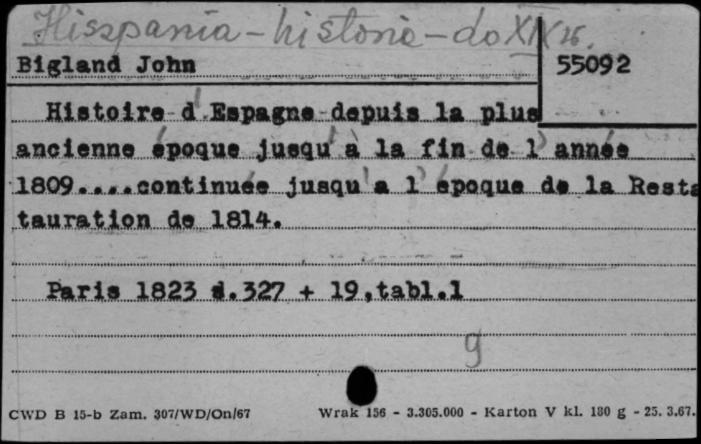 Hiszpania - historia - do XIX w.
Bigland John
55092
Histoire d'Espagne depuis la plus
ancienne époque jusqu'à la fin de l'année
1809....continuée jusqu'a l'époque de la Resta
tauration de 1814.
Paris 1823 s.327 + 19,tabl.1
g
CWD B 15-b Zam. 307/WD/On/67 Wrak 156 - 3.305.000 - Karton V kl. 180 g - 25. 3.67.